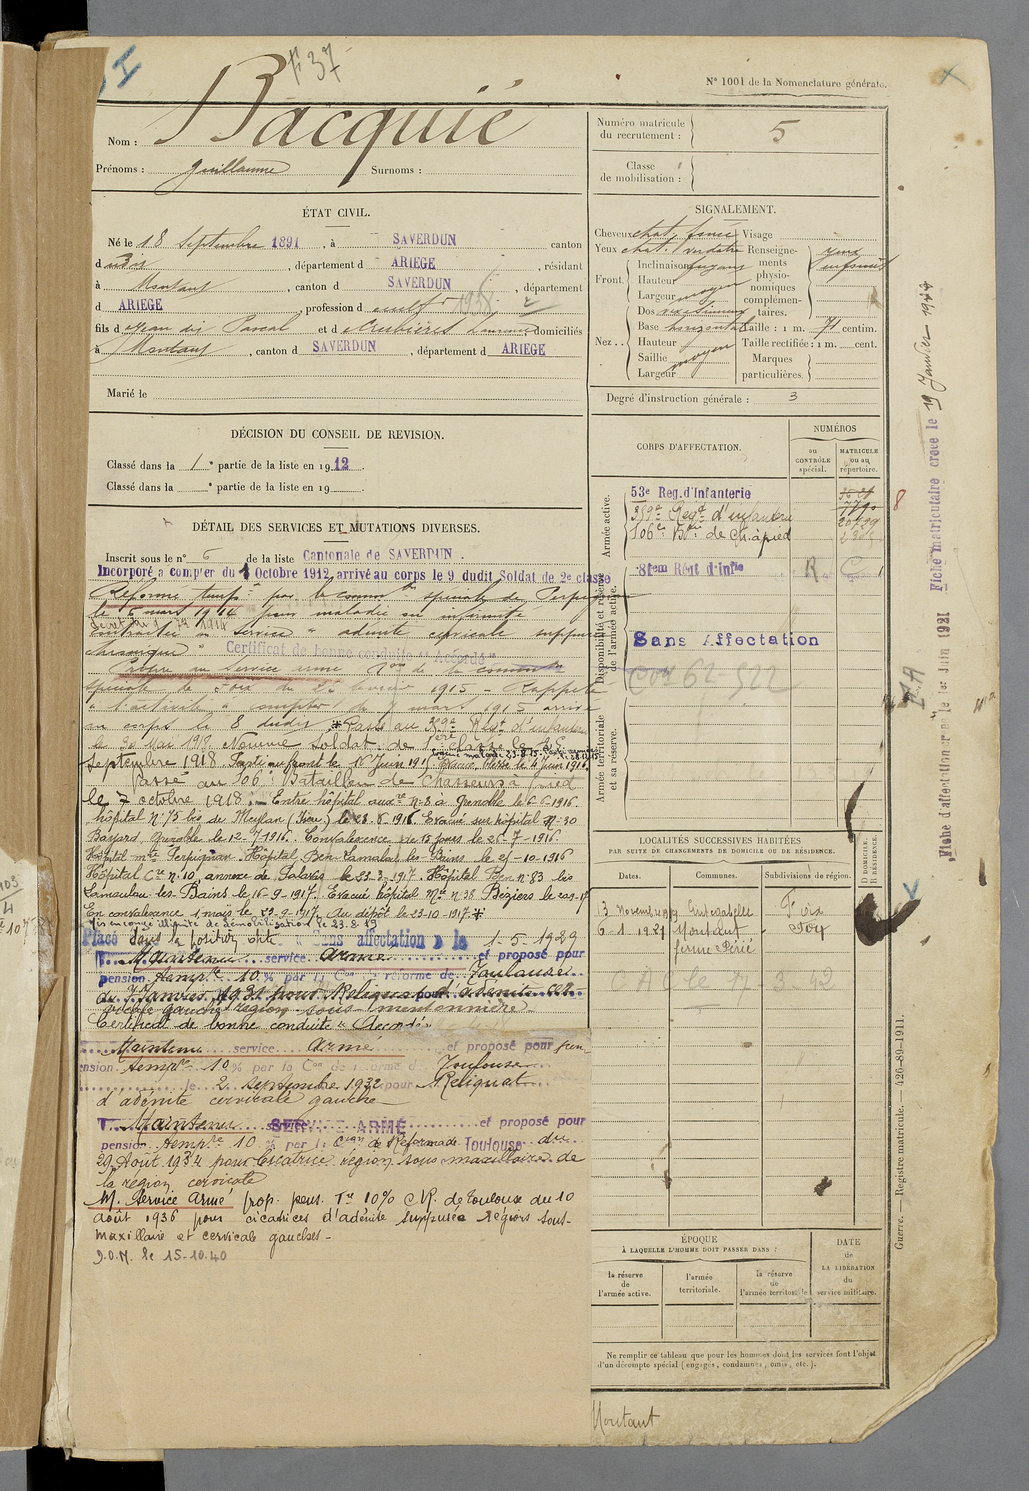 F 37
N° 1001 de la Nomenclature générale.
Nom : Bacquié
Prénoms : Guillaume Surnoms :
ÉTAT CIVIL.
Né le 18 Septembre 1891, à SAVERDUN canton
dudit, département d ARIEGE, résidant
à Montaut, canton d SAVERDUN, département
d ARIEGE, profession de cultr
fils d Jean dit Pascal et d Aubières Laurence, domiciliés
à Montaut, canton d SAVERDUN, département d ARIEGE
Marié le
DÉCISION DU CONSEIL DE REVISION.
Classé dans la 1e partie de la liste en 1912.
Classé dans la e partie de la liste en 19
DÉTAIL DES SERVICES ET MUTATIONS DIVERSES.
Inscrit sous le n° 6 de la liste Cantonale de SAVERDUN.
Incorporé à compter du 1 Octobre 1912, arrivé au corps le 9 dudit Soldat de 2e classe
Réformé tempre par la comm spéciale de Perpignan
le 6 mars 1914 pour maladie ou infirmité
contractée au service "adénite cervicale suppurée
chronique" Certificat de bonne conduite "Accordé"
Propre au service armé Don de la comm
spéciale de Foix du 22 février 1915 - Rappelé
à l'activité à compter du 7 mars 1915 arrivé
au corps le 8 dudit * Passé au 359e Régt d'infanterie
le 30 Mai 1918 Nommé Soldat de 1ère classe le
septembre 1918. Parti au front le
Passé au 106e Bataillon de Chasseurs à pied
le 7 octobre 1918. - Entré hôpital auxre n°8 à Grenoble le 6-6-1916.
hôpital n° 75 bis de Meylan (Isère) le 23-6-1916. Evacué sur hôpital n° 30
Bayard Grenoble le 12-7-1916. Convalescence de 15 jours le 26-7-1916
Hôpital mre Perpignan. Hôpital Ben Lamalou les Bains le 21-10-1916
Hôpital Cre n° 10, annexe de Palavas le 23-3-1917. Hôpital Ben n° 83 bis
Lamalou les Bains le 16-9-1917. Evacué hôpital Mre n° 38 Béziers le 20-9-17
En convalescence 1 mois le 23-9-1917. Au dépôt le 23-10-1917 *
Mis en congé illimité de démobilisation le 23-8-19
Placé dans la position dite "Sans affectation" le 1-5-1929
Maintenu service armé et proposé pour
pension tempre 10 % par la Con de réforme de Toulouse
du Janvier 1931 pour Reliquat d'adénite cer-
vicale gauche région sous-mentonnière
Certificat de bonne conduite "Accordé"
Maintenu service armé et proposé pour pen
sion tempre 10 % par la Con de réforme d Toulouse
le 2 Septembre 1932 pour Reliquat
d'adénite cervicale gauche
Maintenu SERVICE ARMÉ et proposé pour
pension tempre 10 % par la Cion de Réforme de Toulouse du
29 Août 1934 pour Cicatrice région sous maxillaire de
la région cervicale
M. Service Armé prop. pens. Tre 10% C.R. de Toulouse du 10
août 1936 pour cicatrices d'adénite suppurée régions sous-
maxillaire et cervicale gauches -
D.O.M. le 15-10-40
Numéro matricule du recrutement : 5
Classe de mobilisation :
SIGNALEMENT.
Cheveux chat. foncé Visage
Yeux chat. verdâtre Renseignements physionomiques complémentaires.
Front. Inclinaison moyenne
Hauteur
Largeur moyen
Nez. Dos rectiligne
Base horizontale Taille : 1 m. 71 centim.
Hauteur Taille rectifiée : 1 m. cent.
Saillie moyen Marques particulières.
Largeur
Degré d'instruction générale : 3
CORPS D'AFFECTATION.
NUMÉROS
au CONTRÔLE spécial.
MATRICULE ou au répertoire.
Armée active.
53e Reg. d'Infanterie
359e Regt d'infanterie
106e Bon de Ch. à pied
Disponibilité et réserve de l'armée active.
81em Rént d'Infie R
Sans Affectation
Armée territoriale et sa réserve.
LOCALITÉS SUCCESSIVES HABITÉES
PAR SUITE DE CHANGEMENTS DE DOMICILE OU DE RÉSIDENCE.
Dates. Communes. Subdivisions de région. D DOMICILE. R RÉSIDENCE.
13 Novembre 1919 Cintegabelle Foix
6-1-1921 Montaut Foix
ferme Périé
ÉPOQUE
À LAQUELLE L'HOMME DOIT PASSER DANS :
la réserve de l'armée active.
l'armée territoriale.
la réserve de l'armée territoriale
DATE de LA LIBÉRATION du service militaire.
Ne remplir ce tableau que pour les hommes dont les services font l'objet
d'un décompte spécial (engagés, condamnés, omis, etc.).
Montaut
Fiche matriculaire créée le 19 Janvier 1944
Guerre. — Registre matricule. — 426-89-1911.